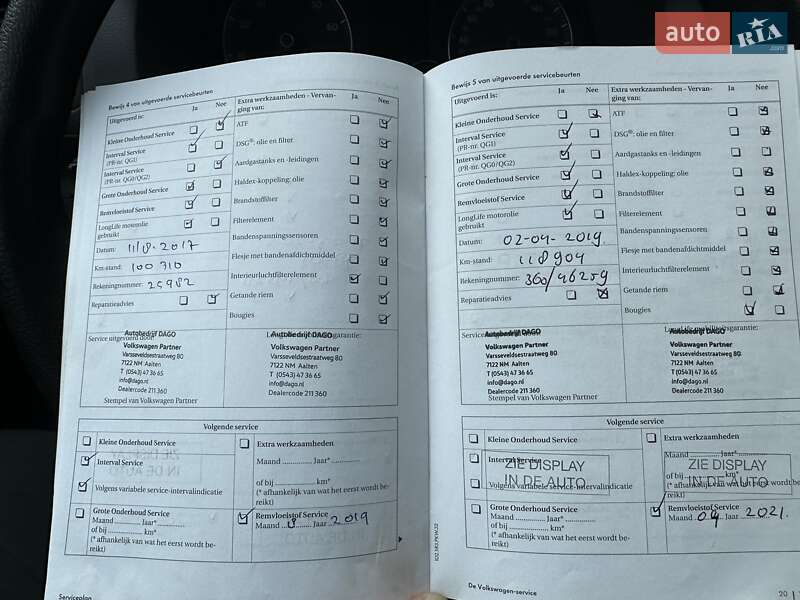 auto RIA.com
Bewijs 4 van uitgevoerde servicebeurten
Uitgevoerd is: Ja Nee
Kleine Onderhoud Service
Interval Service
(PR-nr. QG1)
Interval Service
(PR-nr. QG0/QG2)
Grote Onderhoud Service
Remvloeistof Service
LongLife motorolie
gebruikt
Datum:
Km-stand: 100 710
Rekeningnummer: 25982
Reparatieadvies
Extra werkzaamheden - Vervan-
ging van: Ja Nee
ATF
DSG®: olie en filter
Aardgastanks en -leidingen
Haldex-koppeling: olie
Brandstoffilter
Filterelement
Bandenspanningssensoren
Flesje met bandenafdichtmiddel
Interieurluchtfilterelement
Getande riem
Bougies
Service uitgevoerd door:
Autobedrijf DAGO
Volkswagen Partner
Varsseveldsestraatweg 80
7122 NM Aalten
T (0543) 47 36 65
info@dago.nl
Dealercode 211 360
Stempel van Volkswagen Partner
Autobedrijf DAGO
Volkswagen Partner
Varsseveldsestraatweg 80
7122 NM Aalten
T (0543) 47 36 65
info@dago.nl
Dealercode 211 360
Volgende service
Kleine Onderhoud Service
Interval Service
Volgens variabele service-intervalindicatie
Grote Onderhoud Service
Maand .............. Jaar* ..............
of bij .............. km*
(* afhankelijk van wat het eerst wordt be-
reikt)
Extra werkzaamheden
Maand .............. Jaar* ..............
of bij .............. km*
(* afhankelijk van wat het eerst wordt be-
reikt)
Remvloeistof Service
Maand Jaar 2019
Serviceplan
Bewijs 5 van uitgevoerde servicebeurten
Uitgevoerd is: Ja Nee
Kleine Onderhoud Service
Interval Service
(PR-nr. QG1)
Interval Service
(PR-nr. QG0/QG2)
Grote Onderhoud Service
Remvloeistof Service
LongLife motorolie
gebruikt
Datum: 02-04-2019
Km-stand: 118904
Rekeningnummer: 360/46259
Reparatieadvies
Extra werkzaamheden - Vervan-
ging van: Ja Nee
ATF
DSG®: olie en filter
Aardgastanks en -leidingen
Haldex-koppeling: olie
Brandstoffilter
Filterelement
Bandenspanningssensoren
Flesje met bandenafdichtmiddel
Interieurluchtfilterelement
Getande riem
Bougies
Autobedrijf DAGO
Volkswagen Partner
Varsseveldsestraatweg 80
7122 NM Aalten
T (0543) 47 36 65
info@dago.nl
Dealercode 211 360
Stempel van Volkswagen Partner
LongLife mobiliteitsgarantie:
Autobedrijf DAGO
Volkswagen Partner
Varsseveldsestraatweg 80
7122 NM Aalten
T (0543) 47 36 65
info@dago.nl
Dealercode 211 360
Volgende service
Kleine Onderhoud Service
Interval Service
Volgens variabele service-intervalindicatie
ZIE DISPLAY
IN DE AUTO
Grote Onderhoud Service
Maand .............. Jaar* ..............
of bij .............. km*
(* afhankelijk van wat het eerst wordt be-
reikt)
Extra werkzaamheden
Maand .............. Jaar* ..............
of bij .............. km*
(* afhankelijk van wat het eerst wordt be-
reikt)
ZIE DISPLAY
IN DE AUTO
Remvloeistof Service
Maand 04 Jaar 2021
De Volkswagen-service
20